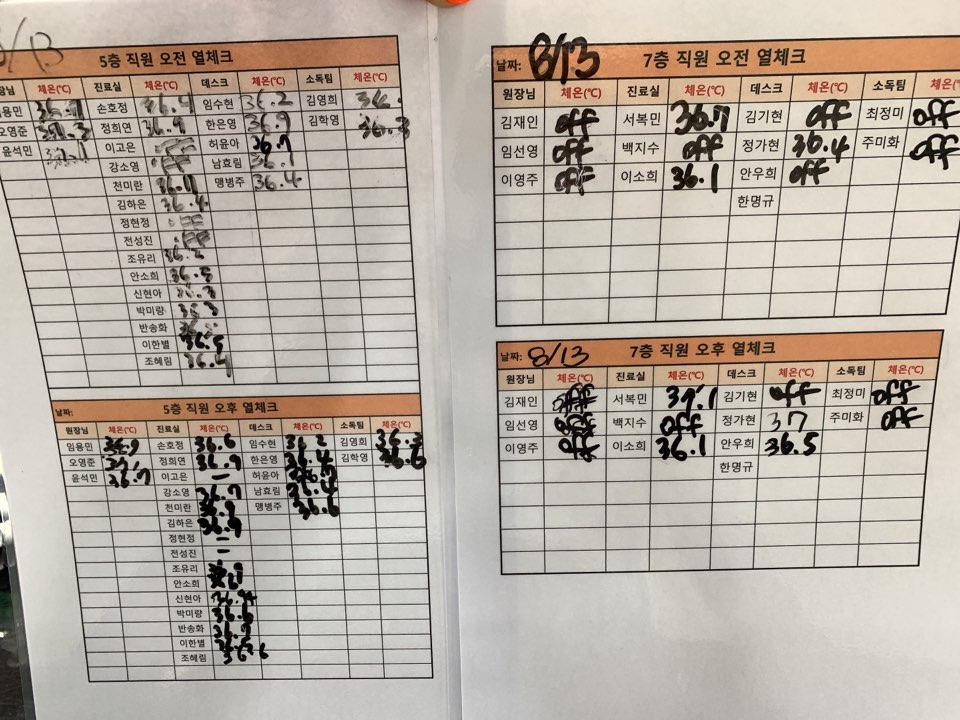 /13
5층 직원 오전 열체크
장님 체온(℃) 진료실 체온(℃) 데스크 체온(℃) 소독팀 체온(℃)
용민 손호정 36.4 임수현 36.2 김영희
오영준 정희연 36.9 한은영 36.9 김학영 36.3
윤석민 이고은 허윤아 36.7
강소영 남효림 36.7
천미란 맹병주 36.4
김하은 36.4
정현정
전성진
조유리
안소희 36.5
신현아
박미량
반송화
이한별 36.5
조혜림 36.4
날짜: 5층 직원 오후 열체크
원장님 체온(℃) 진료실 체온(℃) 데스크 체온(℃) 소독팀 체온(℃)
임용민 36.9 손호정 36.6 임수현 36.2 김영희
오영준 정희연 36.9 한은영 36.4 김학영 36.6
윤석민 36.7 이고은 - 허윤아
강소영 36.7 남효림 36.4
천미란 36.9 맹병주 36.6
김하은 36.9
정현정 -
전성진 -
조유리
안소희
신현아
박미량 36.6
반송화 36.7
이한별
조혜림
날짜: 8/13 7층 직원 오전 열체크
원장님 체온(℃) 진료실 체온(℃) 데스크 체온(℃) 소독팀 체온(℃)
김재인 off 서복민 36.7 김기현 off 최정미 off
임선영 off 백지수 off 정가현 36.4 주미화 off
이영주 off 이소희 36.1 안우희 off
한명규
날짜: 8/13 7층 직원 오후 열체크
원장님 체온(℃) 진료실 체온(℃) 데스크 체온(℃) 소독팀 체온(℃)
김재인 off 서복민 37.1 김기현 off 최정미 off
임선영 off 백지수 off 정가현 37 주미화 off
이영주 off 이소희 36.1 안우희 36.5
한명규